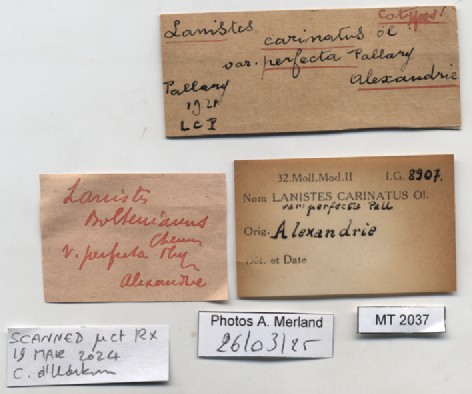 Cotypes!
Lanistes
carinatus Öl
var. perfecta Pallary
Alexandrie
Pallary
32.Moll.Mod.II I.G. 8907.
Nom LANISTES CARINATUS Ol.
var: perfectus Pall
Orig. Alexandrie
Det. et Date
Lanistes
Boltenianus
Chemn
v. perfecta
Alexandrie
Photos A. Merland
26/03/25
MT 2037
SCANNED µct RX
19 MAR 2024